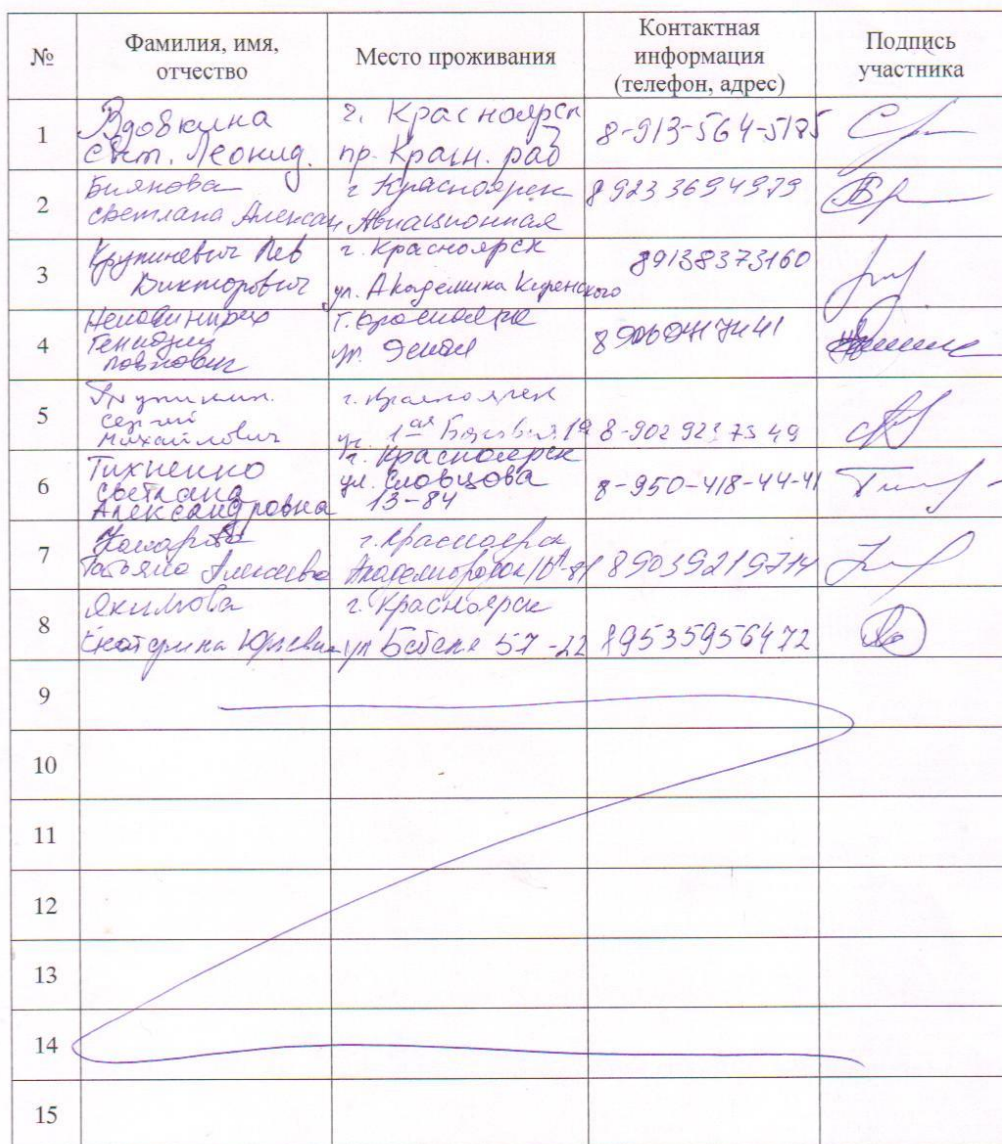 №
Фамилия, имя,
отчество
Место проживания
Контактная
информация
(телефон, адрес)
Подпись
участника
1
Вдовкина
Свет. Леонид.
г. Красноярск
пр. Красн. раб
8-913-564-5185
2
Биянова
Светлана Алексан
г Красноярск
Авиационная
8 923 3694979
3
Крупкневич Лев
Викторович
г. Красноярск
ул. Академика Киренского
89138373160
4
Геннадий
г. Красноярск
ул.
5
Сергей
Михайлович
г. Красноярск
ул. 1ая 19
8-902 923 73 49
6
Тихненко
Светлана
Александровна
г. Красноярск
ул. Словцова
13-84
8-950-418-44-41
7
Татьяна Алексеевна
г. Красноярск
Академгородок
89039219714
8
Якимова
Екатерина Юрьевна
г. Красноярск
ул Бебеля 57-22
89535956472
9
10
11
12
13
14
15